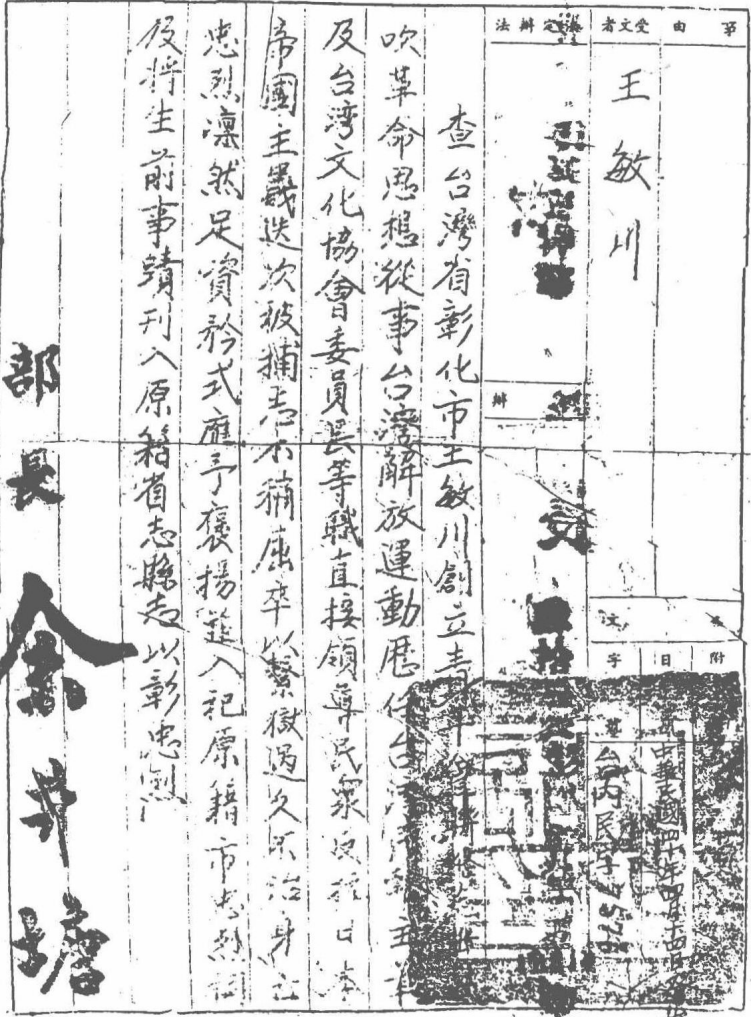 事由
受文者
王敏川
擬定辦法
辦
文
字
日
附
號
中華民國四十年四月十四日
台內民字
查台灣省彰化市王敏川創立青年
吹革命思想從事台灣解放運動歷任台灣
及台湾文化協會委員長等職直接領導民衆反抗日本
帝國主義迭次被捕志不稍屈卒以繫獄過久不治身亡
忠烈凛然足資矜式應予褒揚並入祀原籍市忠烈祠
及将生前事蹟刊入原籍省志縣志以彰忠烈
部長余井塘